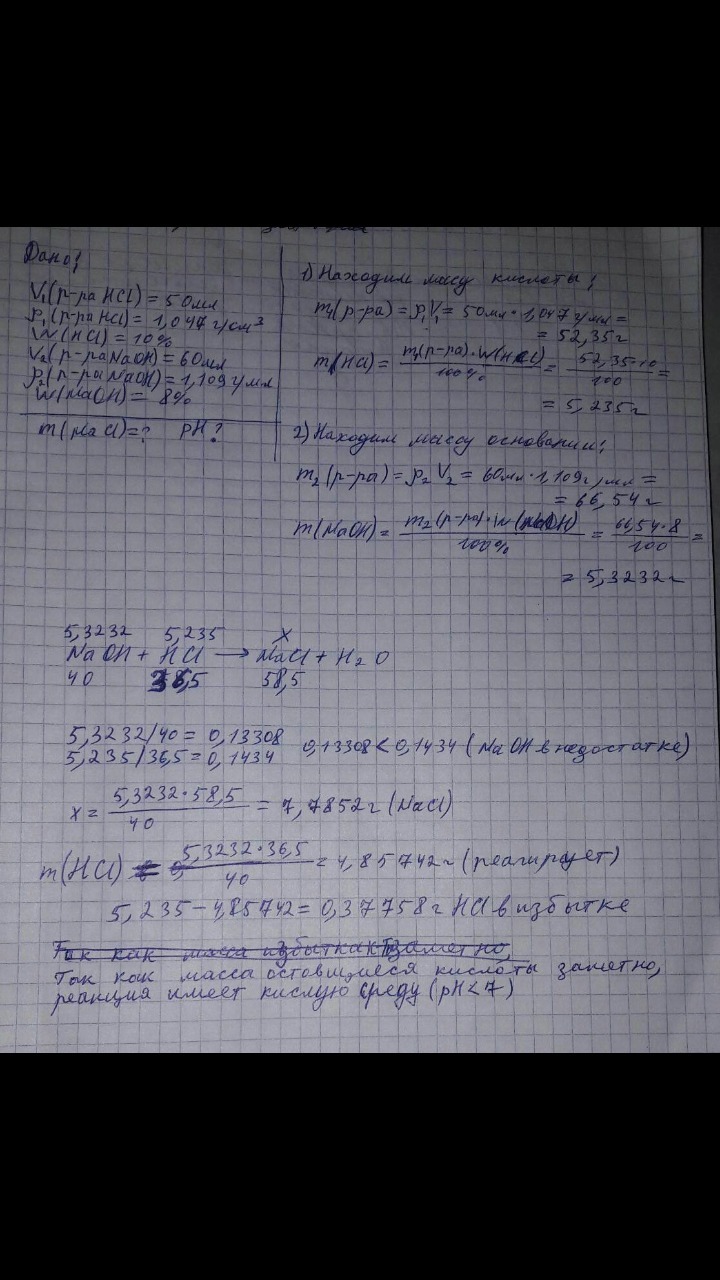 Дано:
V₁(р-ра HCl) = 50мл
ρ₁(р-ра HCl) = 1,047 г/см³
W(HCl) = 10%
V₂(р-ра NaOH) = 60мл
ρ₂(р-ра NaOH) = 1,109 г/мл
W(NaOH) = 8%
m(NaCl)=? pH?
1) Находим массу кислоты;
m₁(р-ра) = ρ₁V₁ = 50мл · 1,047 г/мл =
= 52,35г
m(HCl) = m₁(р-ра)·W(HCl)/100% = 52,35·10/100 =
= 5,235г
2) Находим массу основании;
m₂(р-ра) = ρ₂ V₂ = 60мл · 1,109г/мл =
= 66,54 г
m(NaOH) = m₂(р-ра)·W(NaOH)/100% = 66,54·8/100 =
= 5,3232г
5,3232 5,235 x
NaOH + HCl → NaCl + H₂O
40 36,5 58,5
5,3232/40 = 0,13308
5,235/36,5 = 0,1434 0,13308 < 0,1434 (NaOH в недостатке)
x = 5,3232·58,5/40 = 7,7852г (NaCl)
m(HCl) = 5,3232·36,5/40 = 4,85742г (реагирует)
5,235 – 4,85742 = 0,37758г HCl в избытке
Так как масса избытка заметно,
Так как масса остовщиеся кислоты заметно,
реакция имеет кислую среду (pH<7)